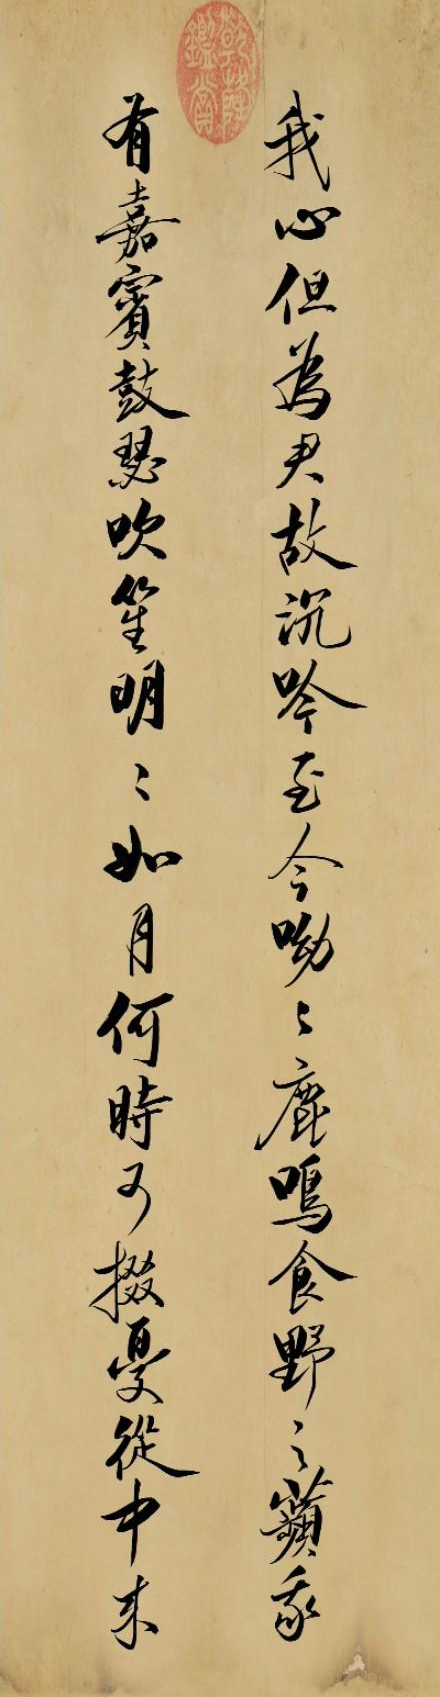 乾隆鑑賞
我心但為君故沉吟至今呦〻鹿鳴食野之蘋我
有嘉賓鼓瑟吹笙明〻如月何時可掇憂從中來